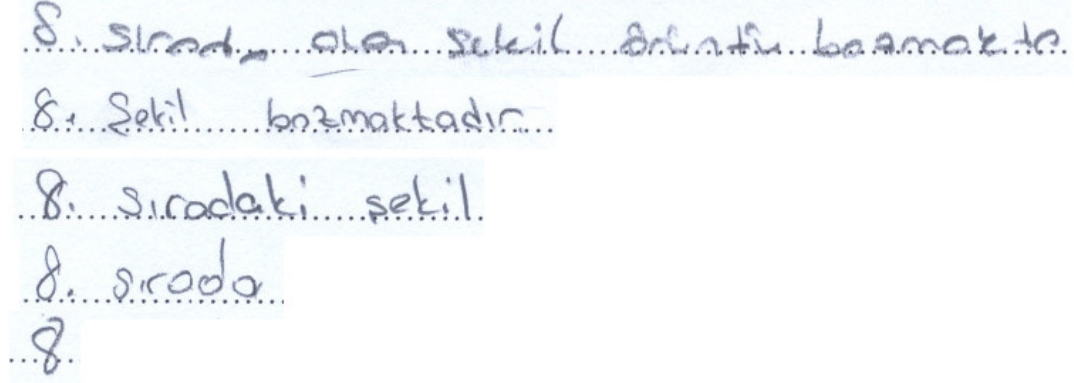 8. sırada olan şekil örüntü bozmakta
8. Şekil bozmaktadır
8. sıradaki şekil
8. sırada
8